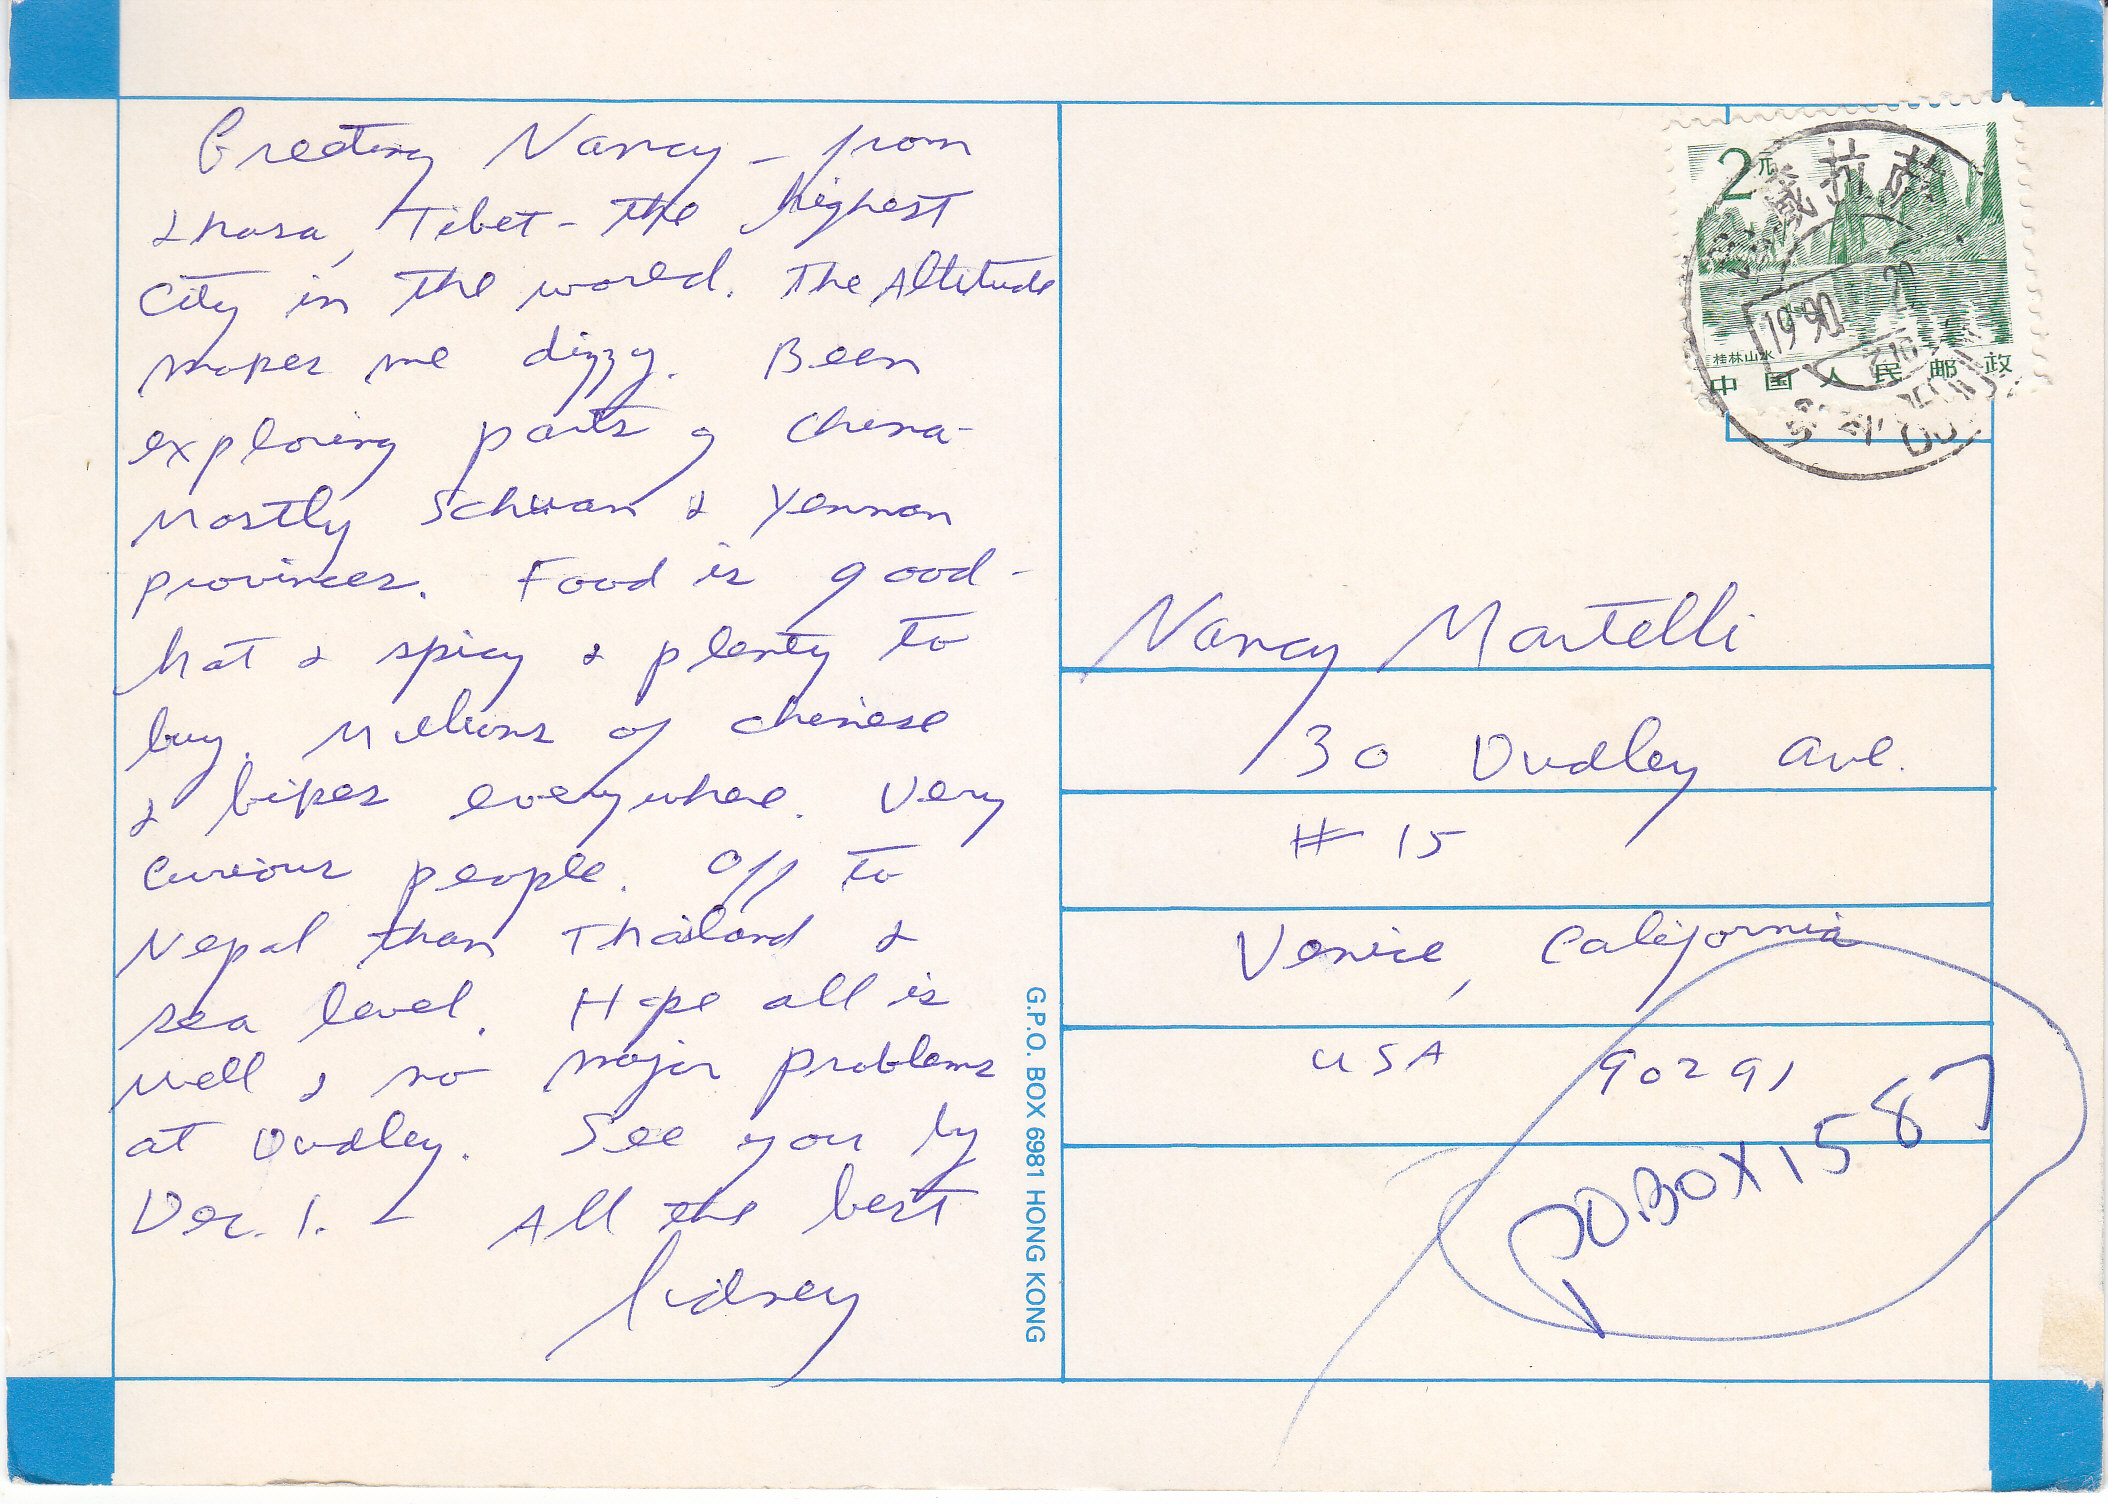 Greeting Nancy - from
Lhasa, Tibet - the highest
City in the world. The Altitude
makes me dizzy. Been
exploring parts of China -
Mostly Schuan & Yennan
provinces. Food is good -
hot & spicy & plenty to
buy. Millions of Chinese
& bikes everywhere. Very
Curious people. Off to
Nepal then Thailand &
sea level. Hope all is
well & no major problems
at Dudley. See you by
Dec. 1. - All the best
Sidney
G.P.O. BOX 6981 HONG KONG
2元
桂林山水
中国人民邮政
西藏拉萨
1990
Nancy Martelli
30 Dudley Ave.
# 15
Venice, California
USA 90291
P.O. BOX 1587